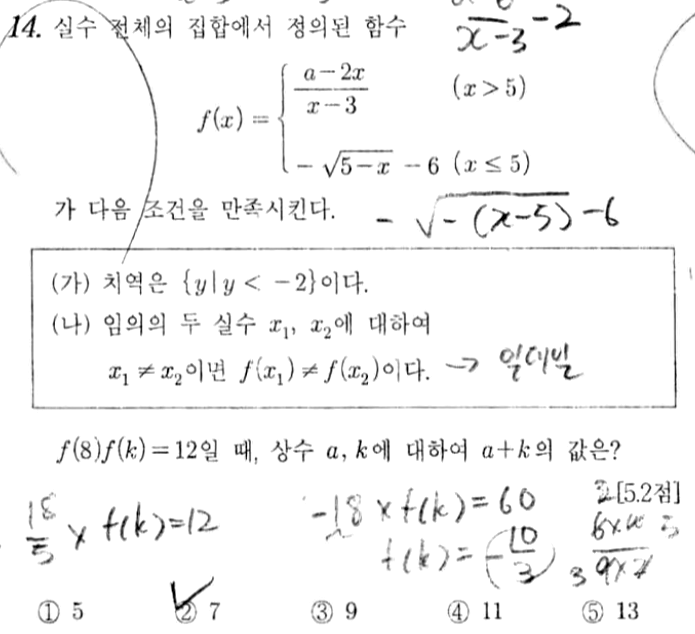 14. 실수 전체의 집합에서 정의된 함수
x-3 -2
f(x) = { (a-2x)/(x-3) (x > 5)
-√(5-x) - 6 (x ≤ 5)
가 다음 조건을 만족시킨다.
-√(-(x-5)) -6
(가) 치역은 {y|y < -2}이다.
(나) 임의의 두 실수 x₁, x₂에 대하여
x₁ ≠ x₂이면 f(x₁) ≠ f(x₂)이다. → 일대일
f(8)f(k) = 12일 때, 상수 a, k에 대하여 a+k의 값은?
[5.2점]
18/5 × f(k)=12
-18 × f(k) = 60
f(k) = -10/3
① 5 ② 7 ③ 9 ④ 11 ⑤ 13